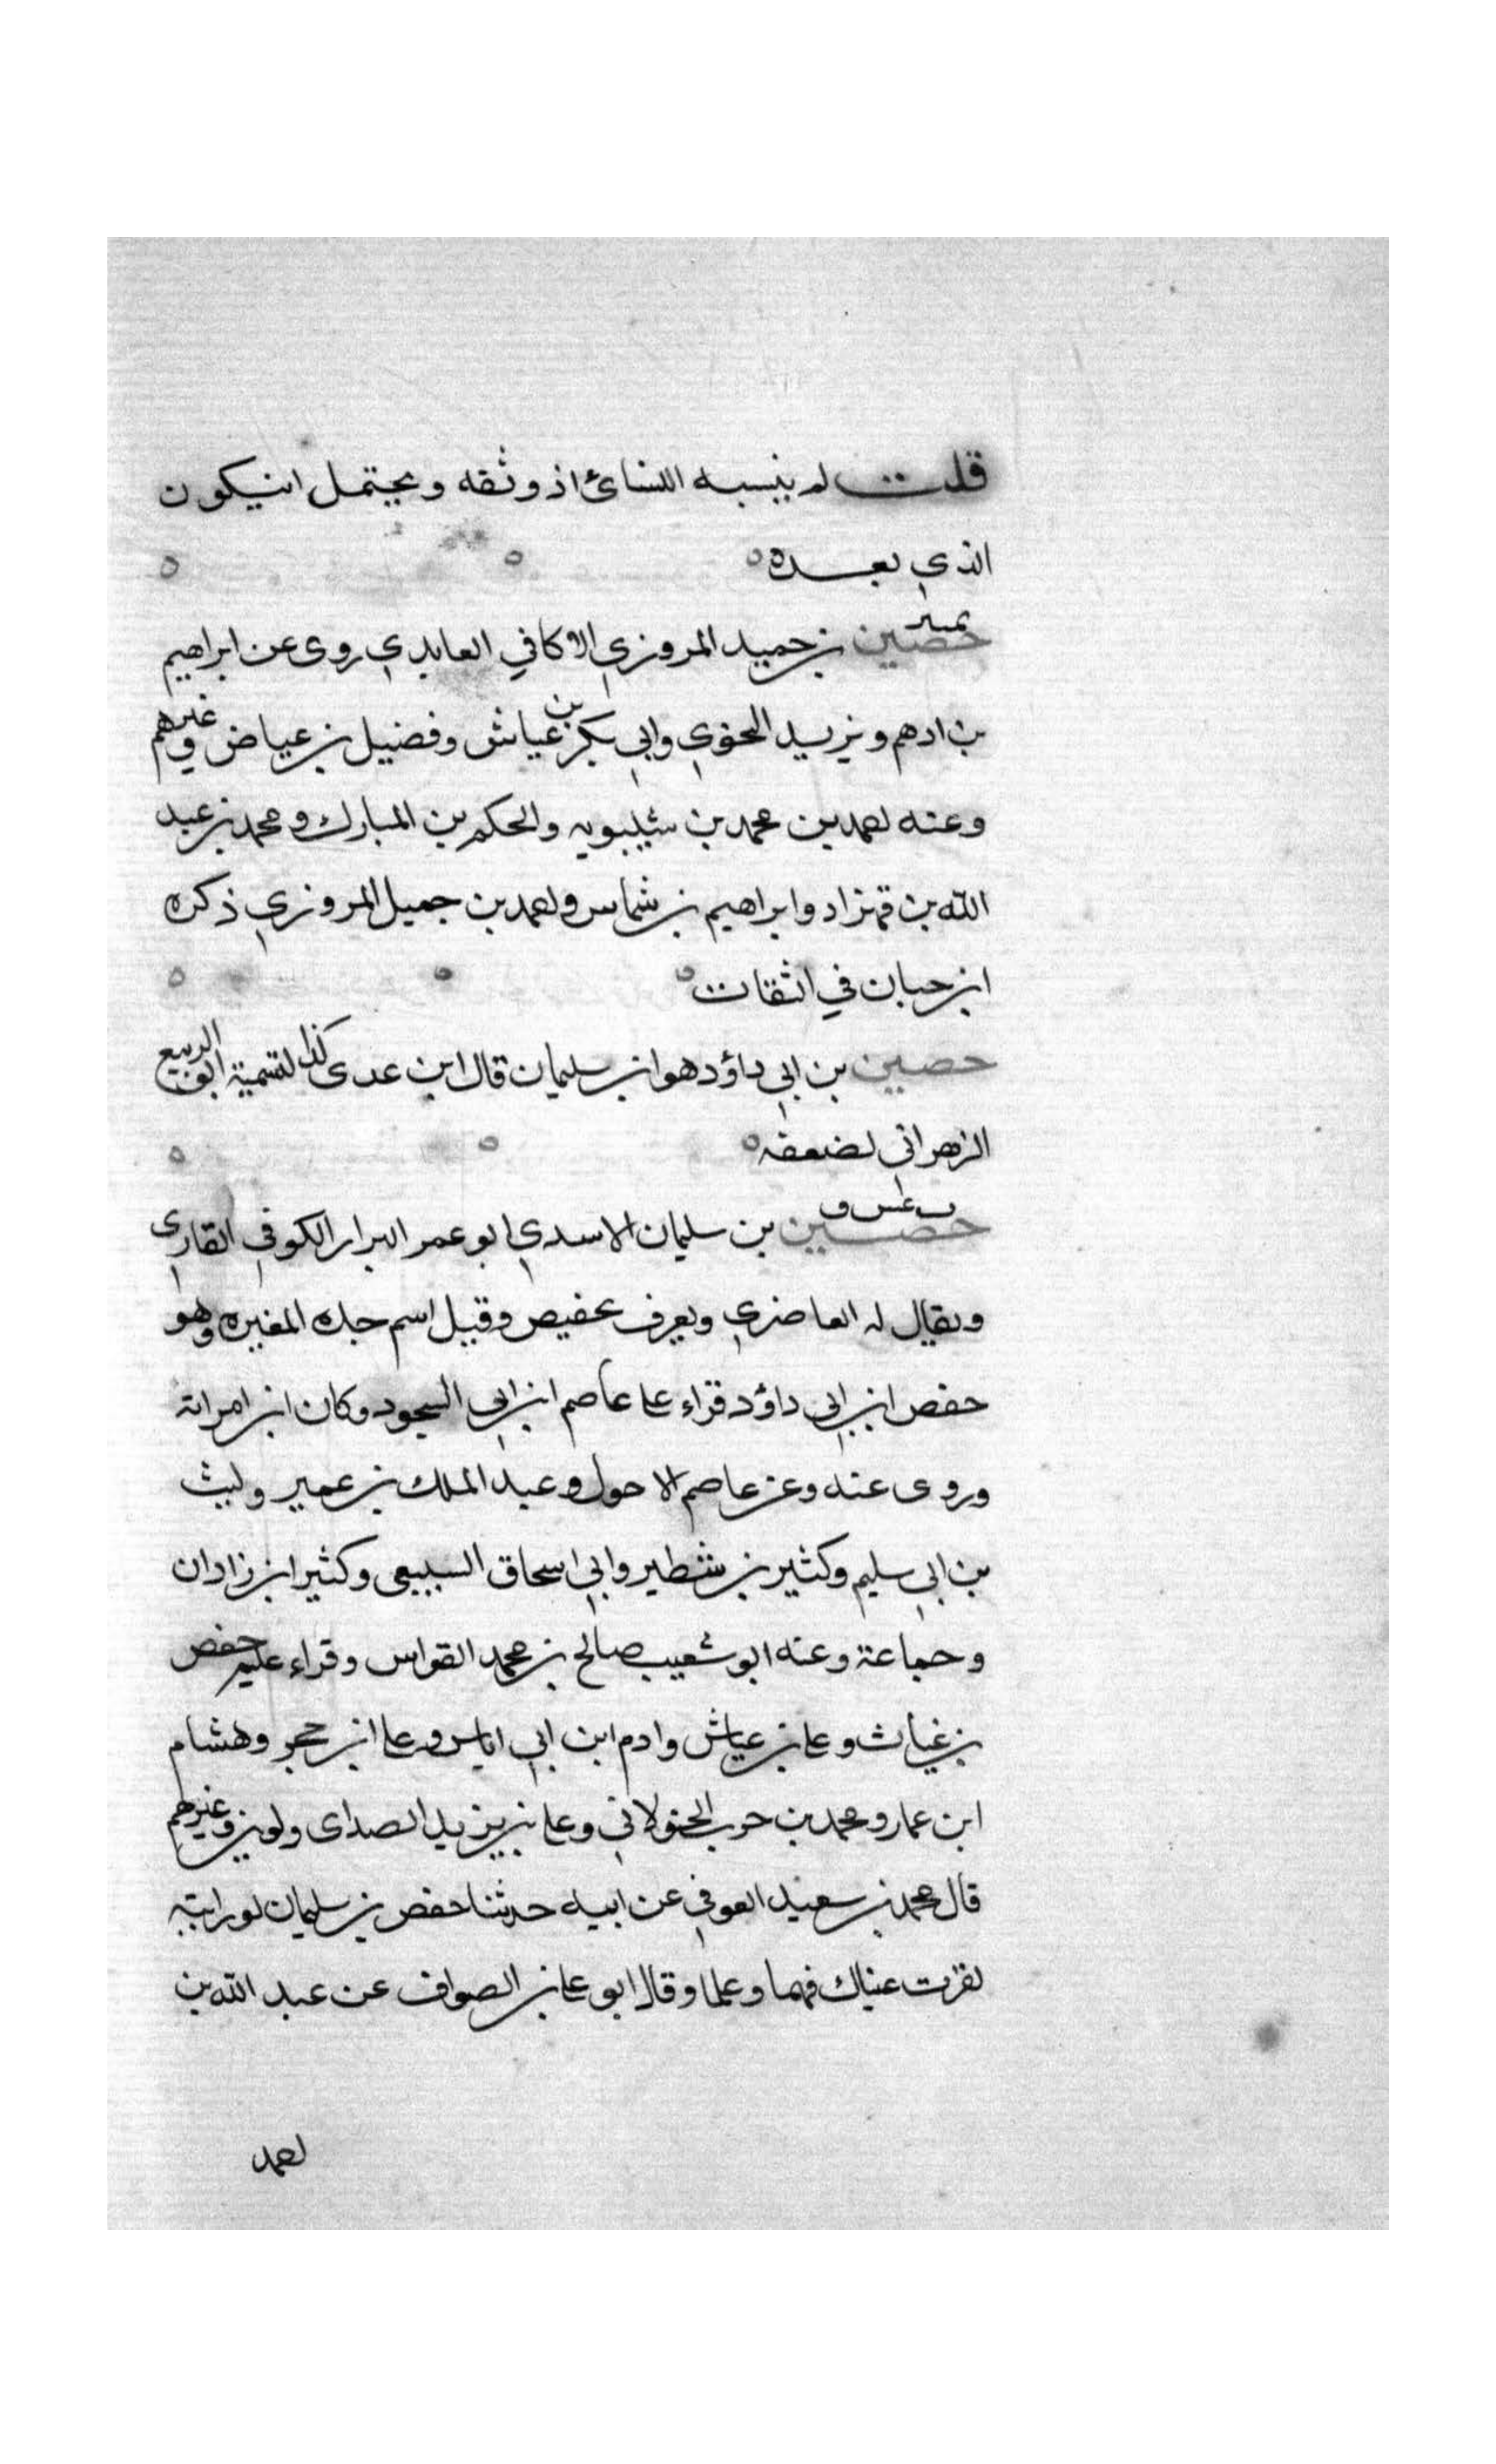 قلت لم ينسبه النسائ اذ وثقه ويحتمل انيكون
الذي بعده
تمييز
حصين بن حميد المروزي الاكافي العابدي روى عن ابراهيم
بن ادهم ويزيد النحوي وابي بكر بن عياش وفضيل بن عياض وغيرهم
وعنه احمد بن محمد بن شبيويه والحكم بن المبارك ومحمد بن عبد
الله بن قهزاد وابراهيم بن شماس واحمد بن جميل المروزي ذكره
ابن حبان في الثقات
حصين بن ابي داؤد هو ابن سليمان قال ابن عدى كذا لتسمية ابو الربيع
الزهراني لضعفه
حصين بن سليمان الاسدي ابو عمر البزار الكوفي القارى
ويقال له الغاضري ويعرف بحفيص وقيل اسم جده المغيره وهو
حفص ابن ابي داؤد قراء علي عاصم ابن ابي النجود وكان ابن امراته
وروى عنه وعن عاصم الاحول وعبد الملك بن عمير وليث
بن ابي سليم وكثير بن شنظير وابي اسحاق السبيعى وكثير ابن زادان
وجماعة وعنه ابو شعيب صالح بن محمد القواس وقراء عليه حفص
بن غياث وعلي بن عياش وادم ابن ابي اياس وعلي ابن حجر وهشام
ابن عمار ومحمد بن حرب الخولاني وعلي بن يزيد الصداى ولوين وغيرهم
قال محمد بن سعيد العوفي عن ابيه حدثنا حفص بن سليمان لو رايته
لقرت عيناك فهما وعلما وقال ابو علي بن الصواف عن عبد الله بن
احمد